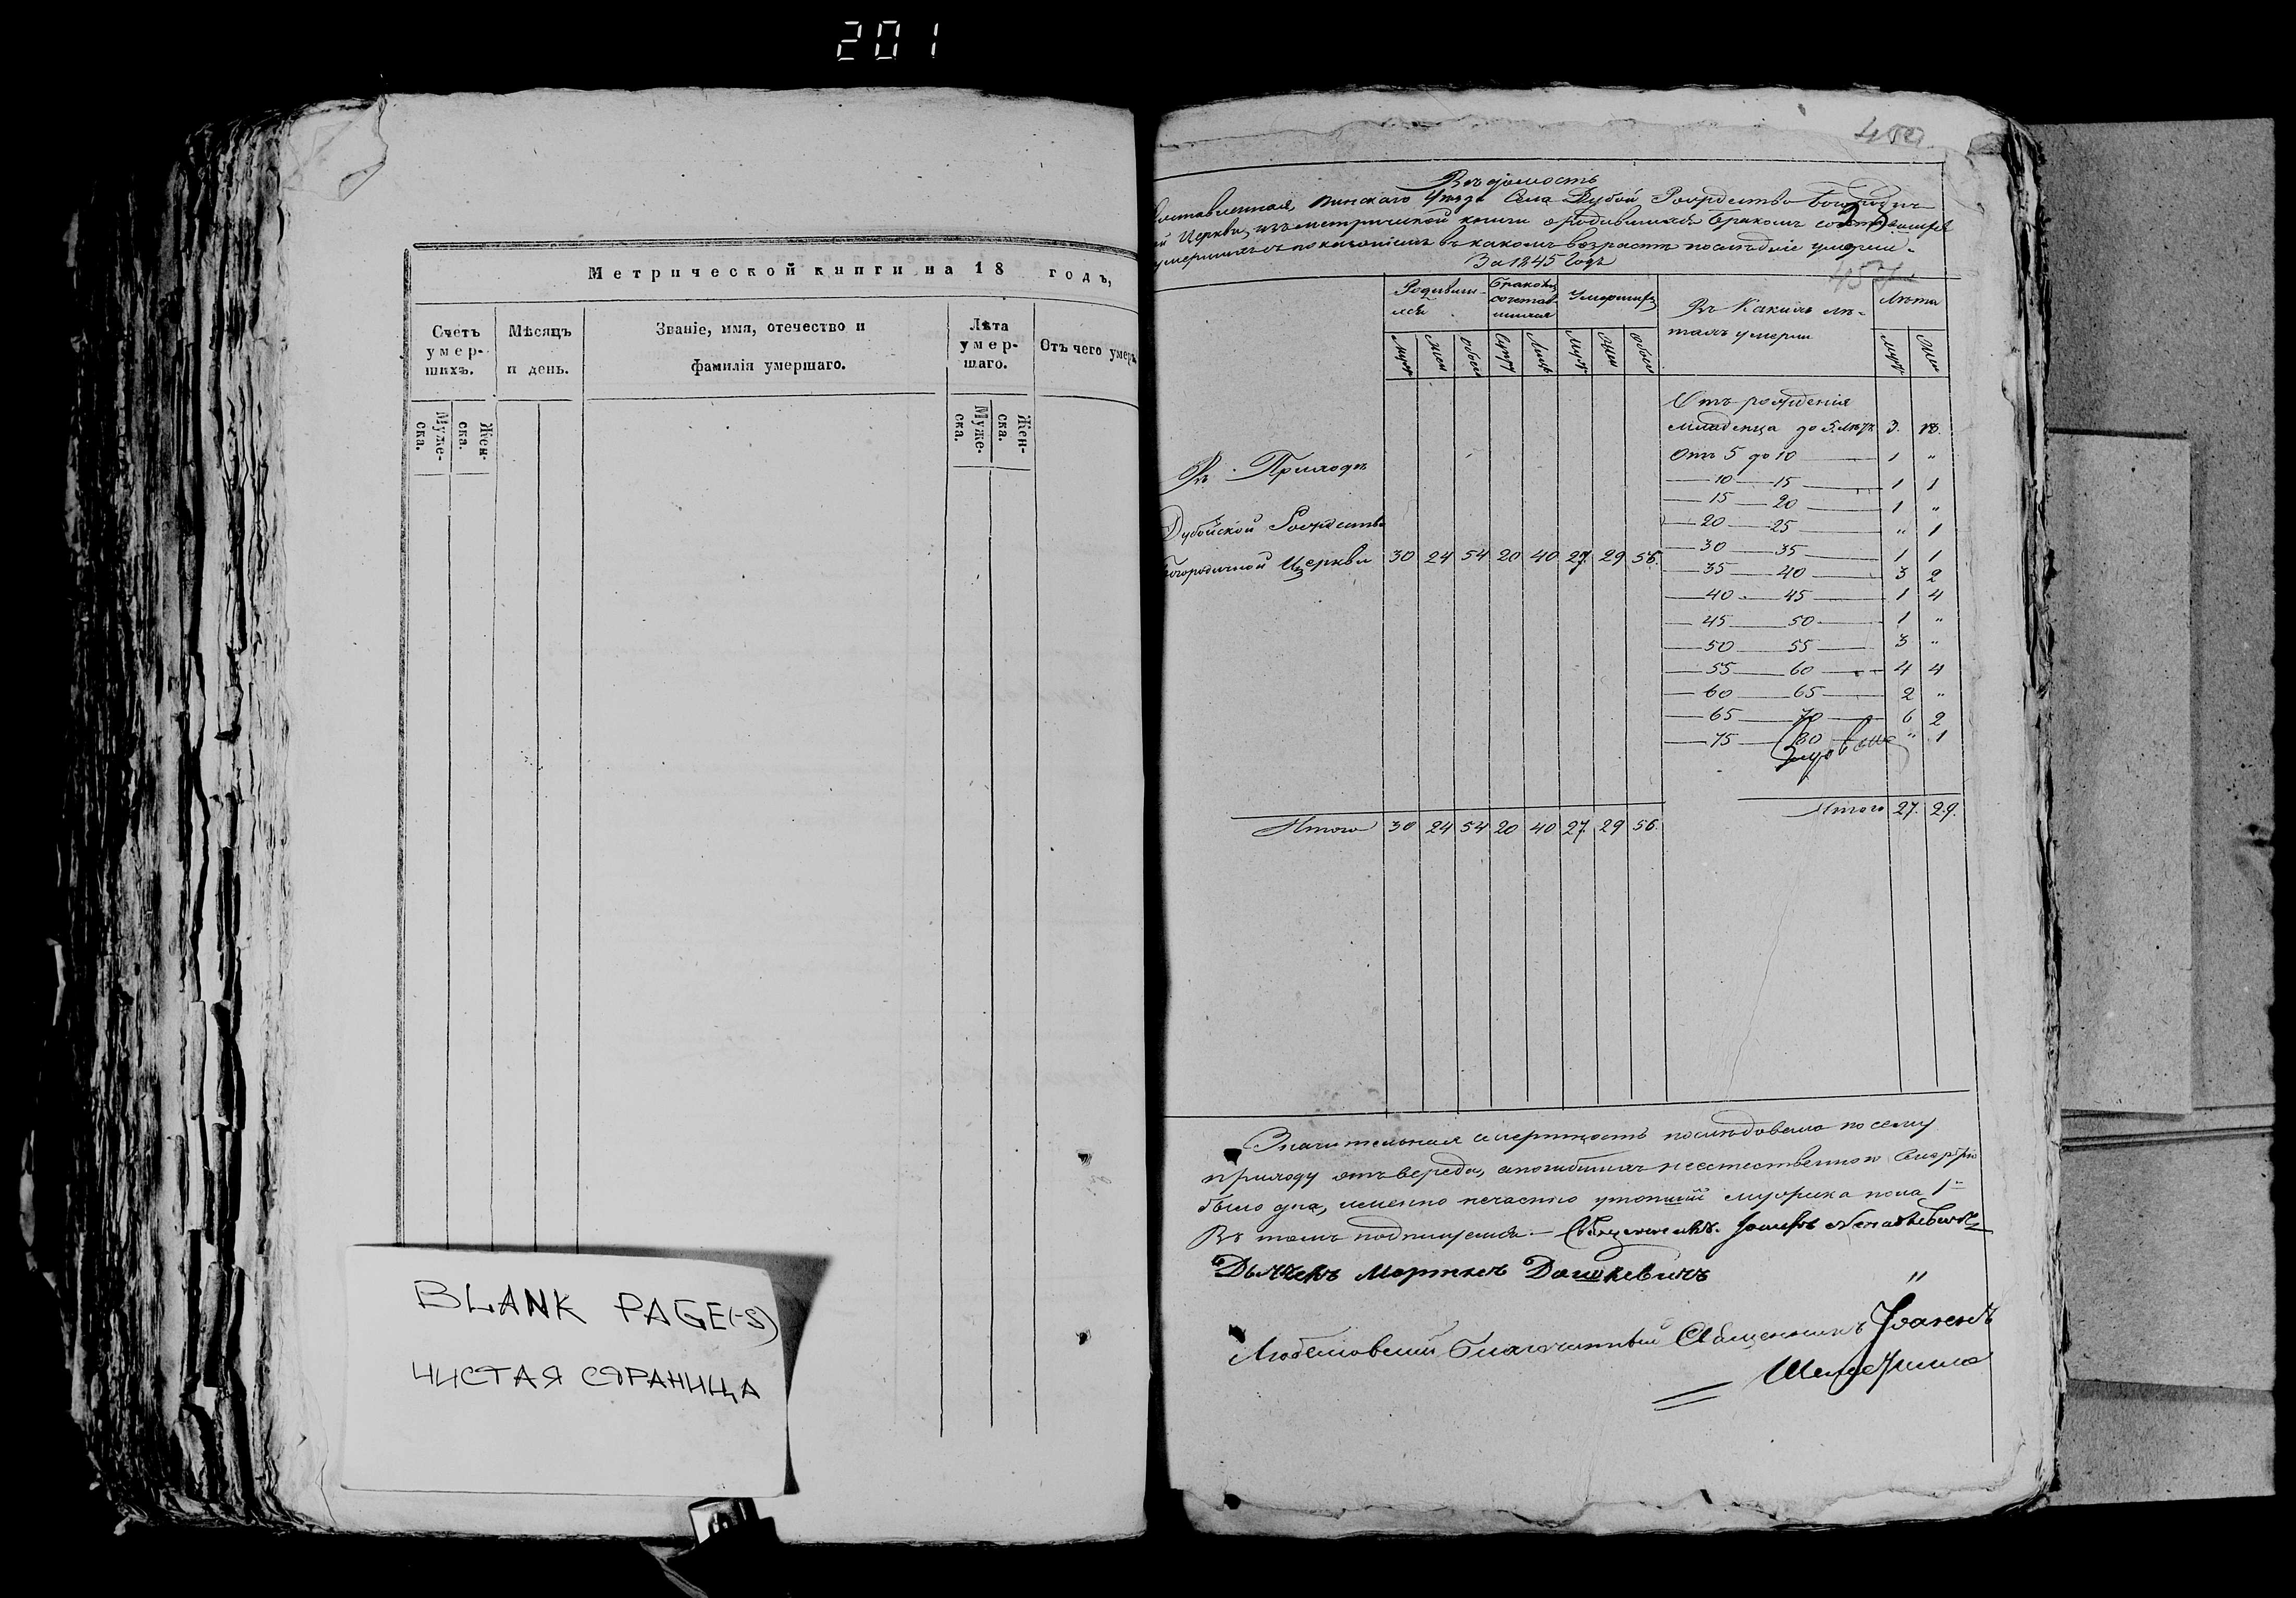 201
Метрической книги на 18 годъ,
Счетъ умер-шихъ.
Мѣсяцъ и день.
Званіе, имя, отечество и фамилія умершаго.
Лѣта умер-шаго.
Отъ чего умеръ
Муже-ска.
Жен-ска.
Муже-ска.
Жен-ска.
BLANK PAGE(-S)
ЧИСТАЯ СТРАНИЦА
Вѣдомость
Составленная, Пинскаго Уѣзда Села Дубой Рождество Богородич
ой Церкви, изъ метрической книги о родившихся бракомъ
умершихъ съ показаніемъ въ какомъ возрастѣ послѣдніе умерли.
За 1845 Годъ
457
Родивши-
мся
Бракомъ
сочетав-
шихся
Умершихъ
Въ Какихъ лѣ-
тахъ умерли
Лѣта
Муж Жен Обоего Супр Лицъ Муж Жен Обоего Муж Жен
Отъ рожденія
младенца до 5 лѣтъ 3. 13.
Отъ 5 до 10 1 "
10 15 1 1
15 20 1 "
20 25 " 1
30 35 1 1
35 40 3 2
40 45 1 4
45 50 1 "
50 55 3 "
55 60 4 4
60 65 2 "
65 70 6 2
75 80 " 1
Въ Приходѣ
Дубойской Рождество
Богородичной Церкви 30 24 54 20 40 27 29 56.
Итого 30 24 54 20 40 27. 29 56.
Итого 27. 29.
Значительная смертность послѣдовала по сему
приходу отъ вереда, а погибшихъ неестественною смертію
было два, именно нечаянно утопшій мужеска пола 1
Въ томъ подписуемся Священникъ Іосифъ
Дьячекъ Мартинъ Дашкевичъ
Любешовскій Благочинный Священникъ Іоаннъ